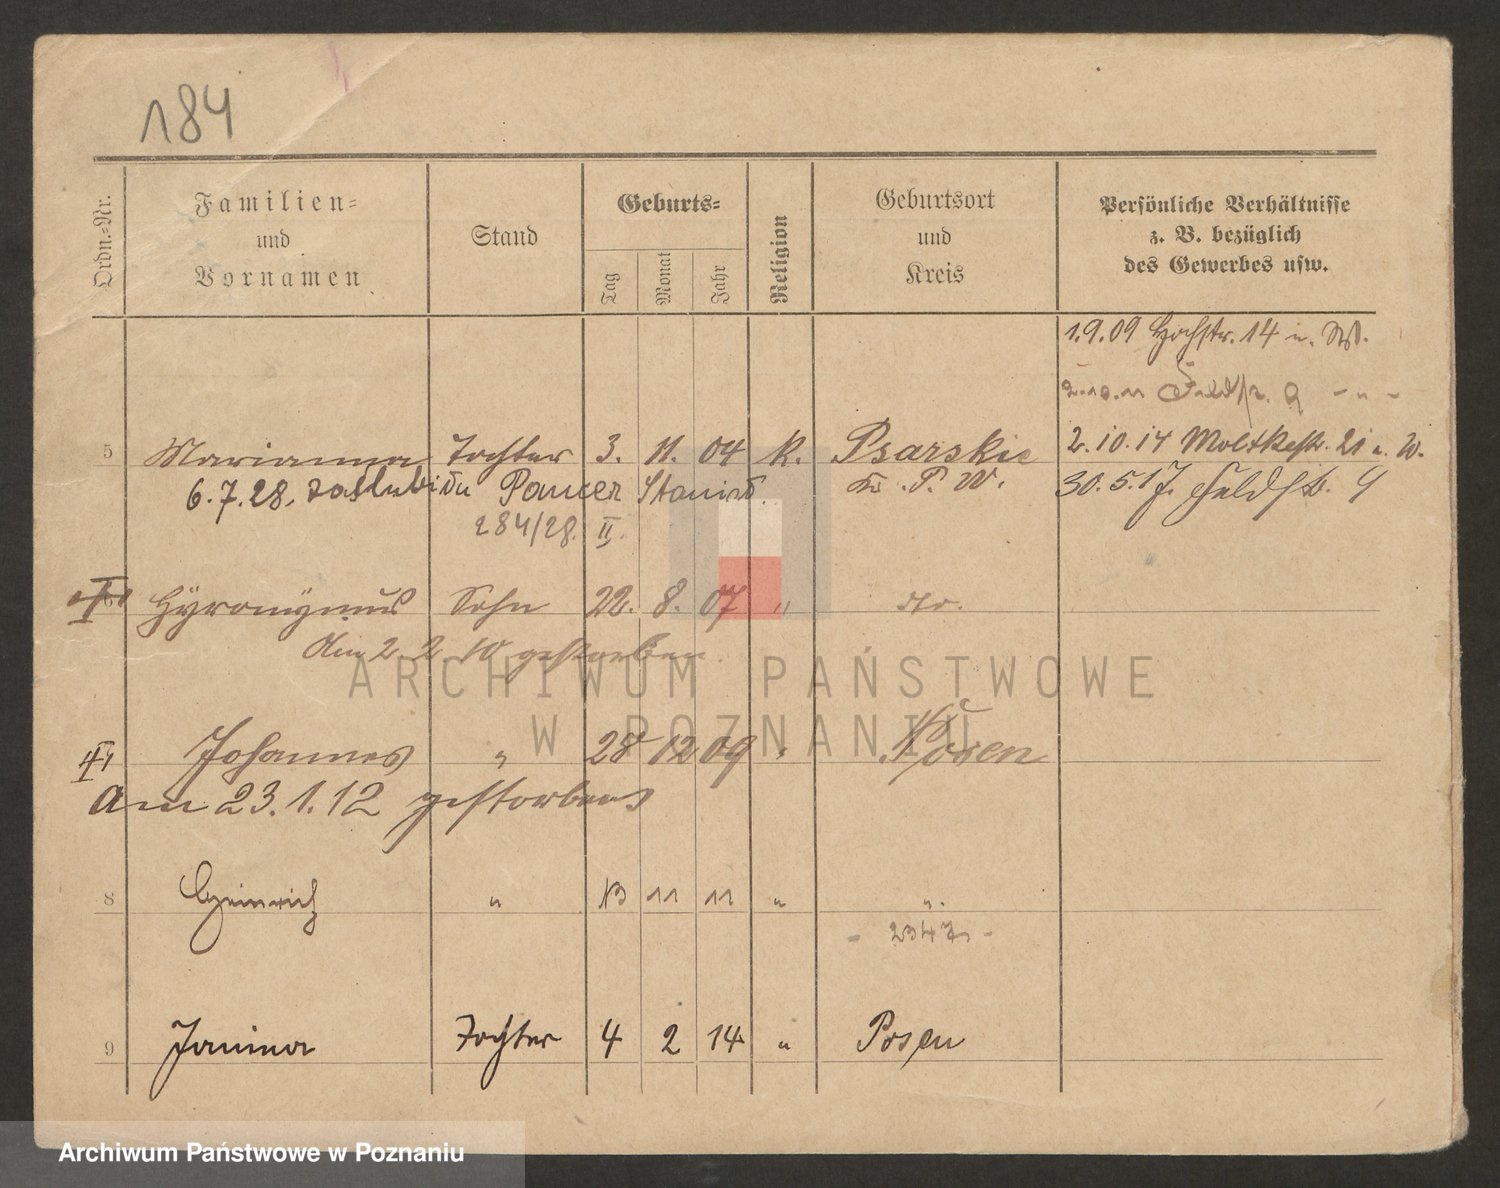 184
Ordn.-Nr.
Familien-
und
Vornamen
Stand
Geburts-
Tag
Monat
Jahr
Religion
Geburtsort
und
Kreis
Persönliche Verhältnisse
z. B. bezüglich
des Gewerbes usw.
1.9.09 Hochstr. 14 u. Whf.
2.10.11 Feldstr. 9 - " -
5 Marianna Tochter 3. 11. 04 k. Psarskie 2.10.14 Moltkestr. 21 u. W.
6.7.28. zaślubiła Pancer Stanisł. Kr. P. W. 30.5.17. Feldstr. 9
284/28. II.
6 Hyronymus Sohn 22. 8. 07 " do.
Am 2 2 10 gestorben
Johannes " 28 12 09 " Posen
am 23.1.12 gestorben
8 Heinrich " 13 11 11 " "
- 2347 -
9 Janina Tochter 4 2 14 " Posen
ARCHIWUM PAŃSTWOWE
W POZNANIU
Archiwum Państwowe w Poznaniu